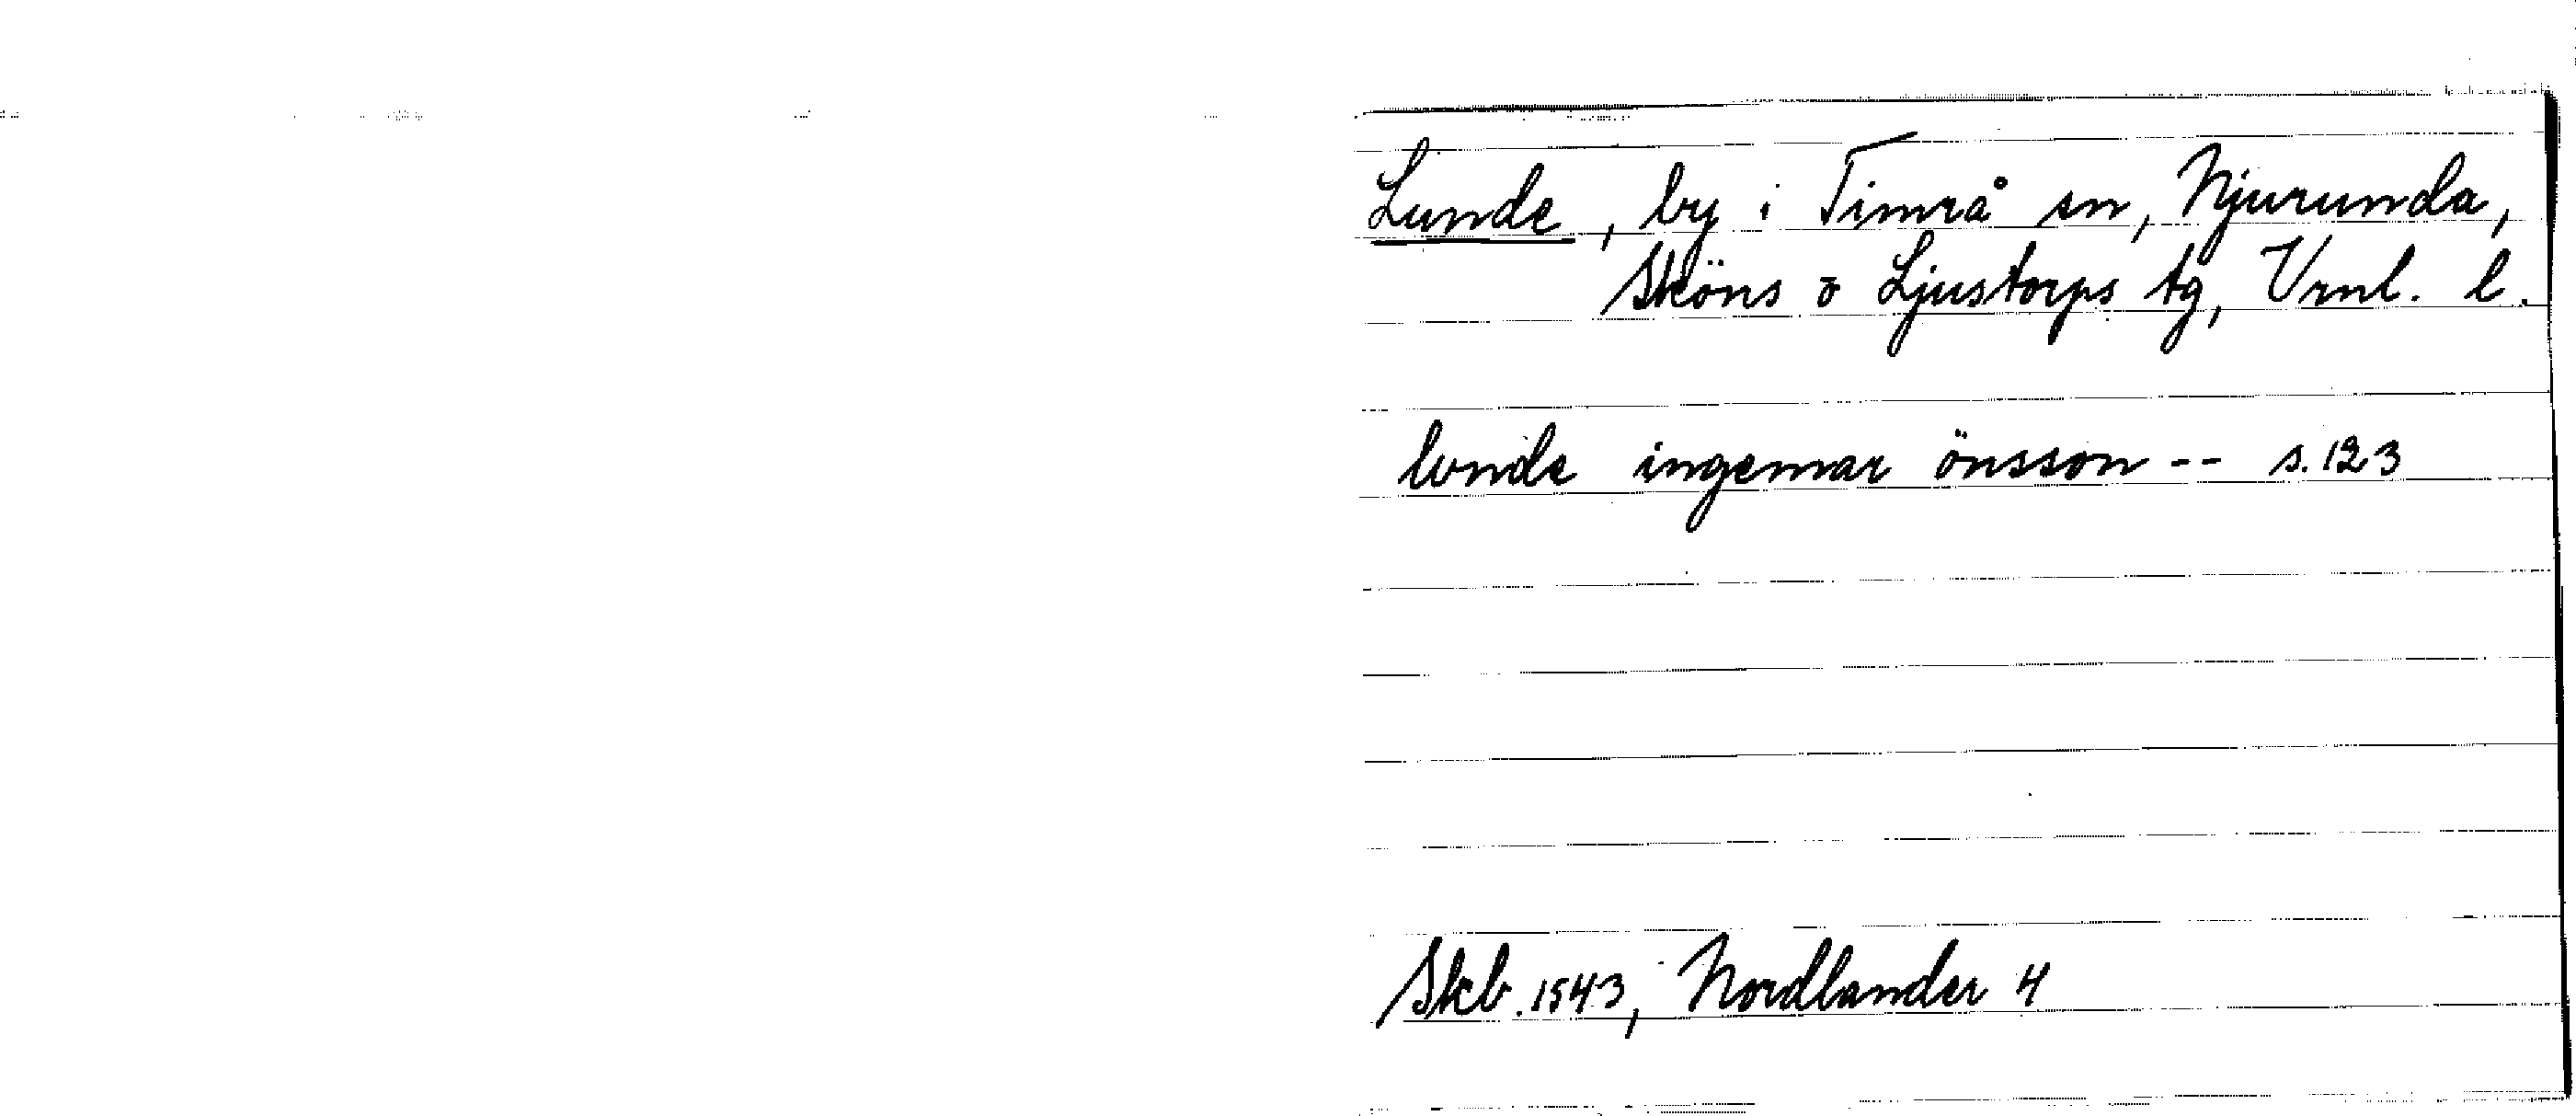 Lunde, by i Timrå sn, Njurunda,
Sköns o Ljustorps tg, Vrnl. l.
lvnde ingemar önsson -- s. 123
Skb. 1543, Nordlander 4